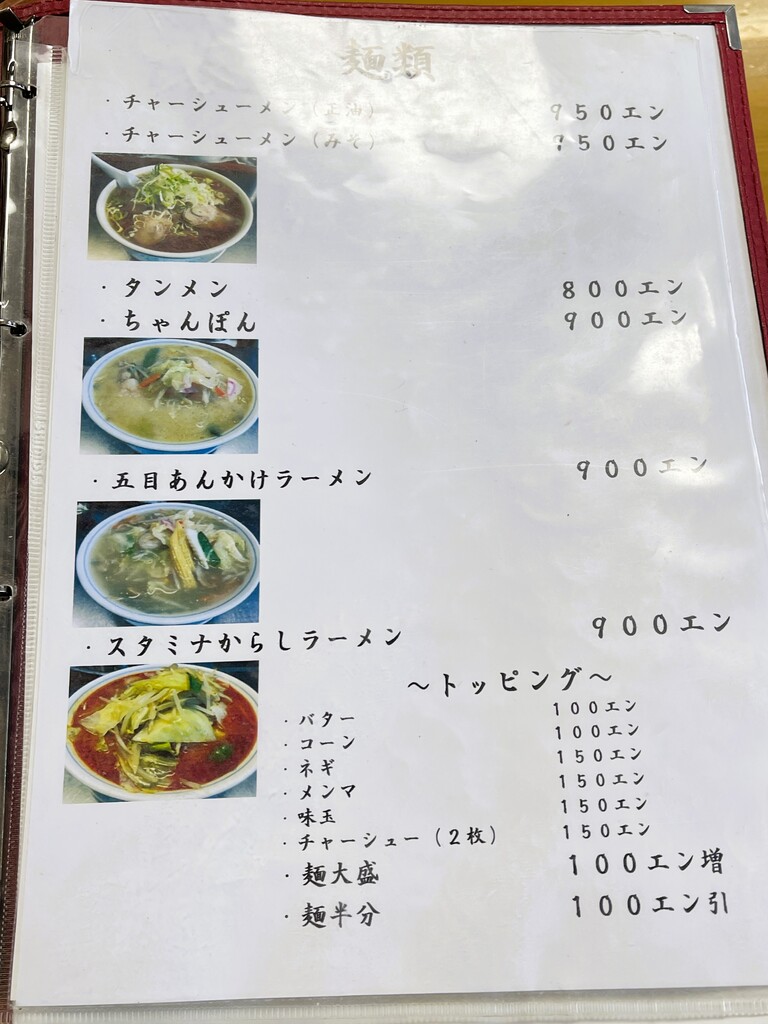 麺類
・チャーシューメン(正油) 950エン
・チャーシューメン(みそ) 950エン
・タンメン 800エン
・ちゃんぽん 900エン
・五目あんかけラーメン 900エン
・スタミナからしラーメン 900エン
～トッピング～
・バター 100エン
・コーン 100エン
・ネギ 150エン
・メンマ 150エン
・味玉 150エン
・チャーシュー(2枚) 150エン
・麺大盛 100エン増
・麺半分 100エン引